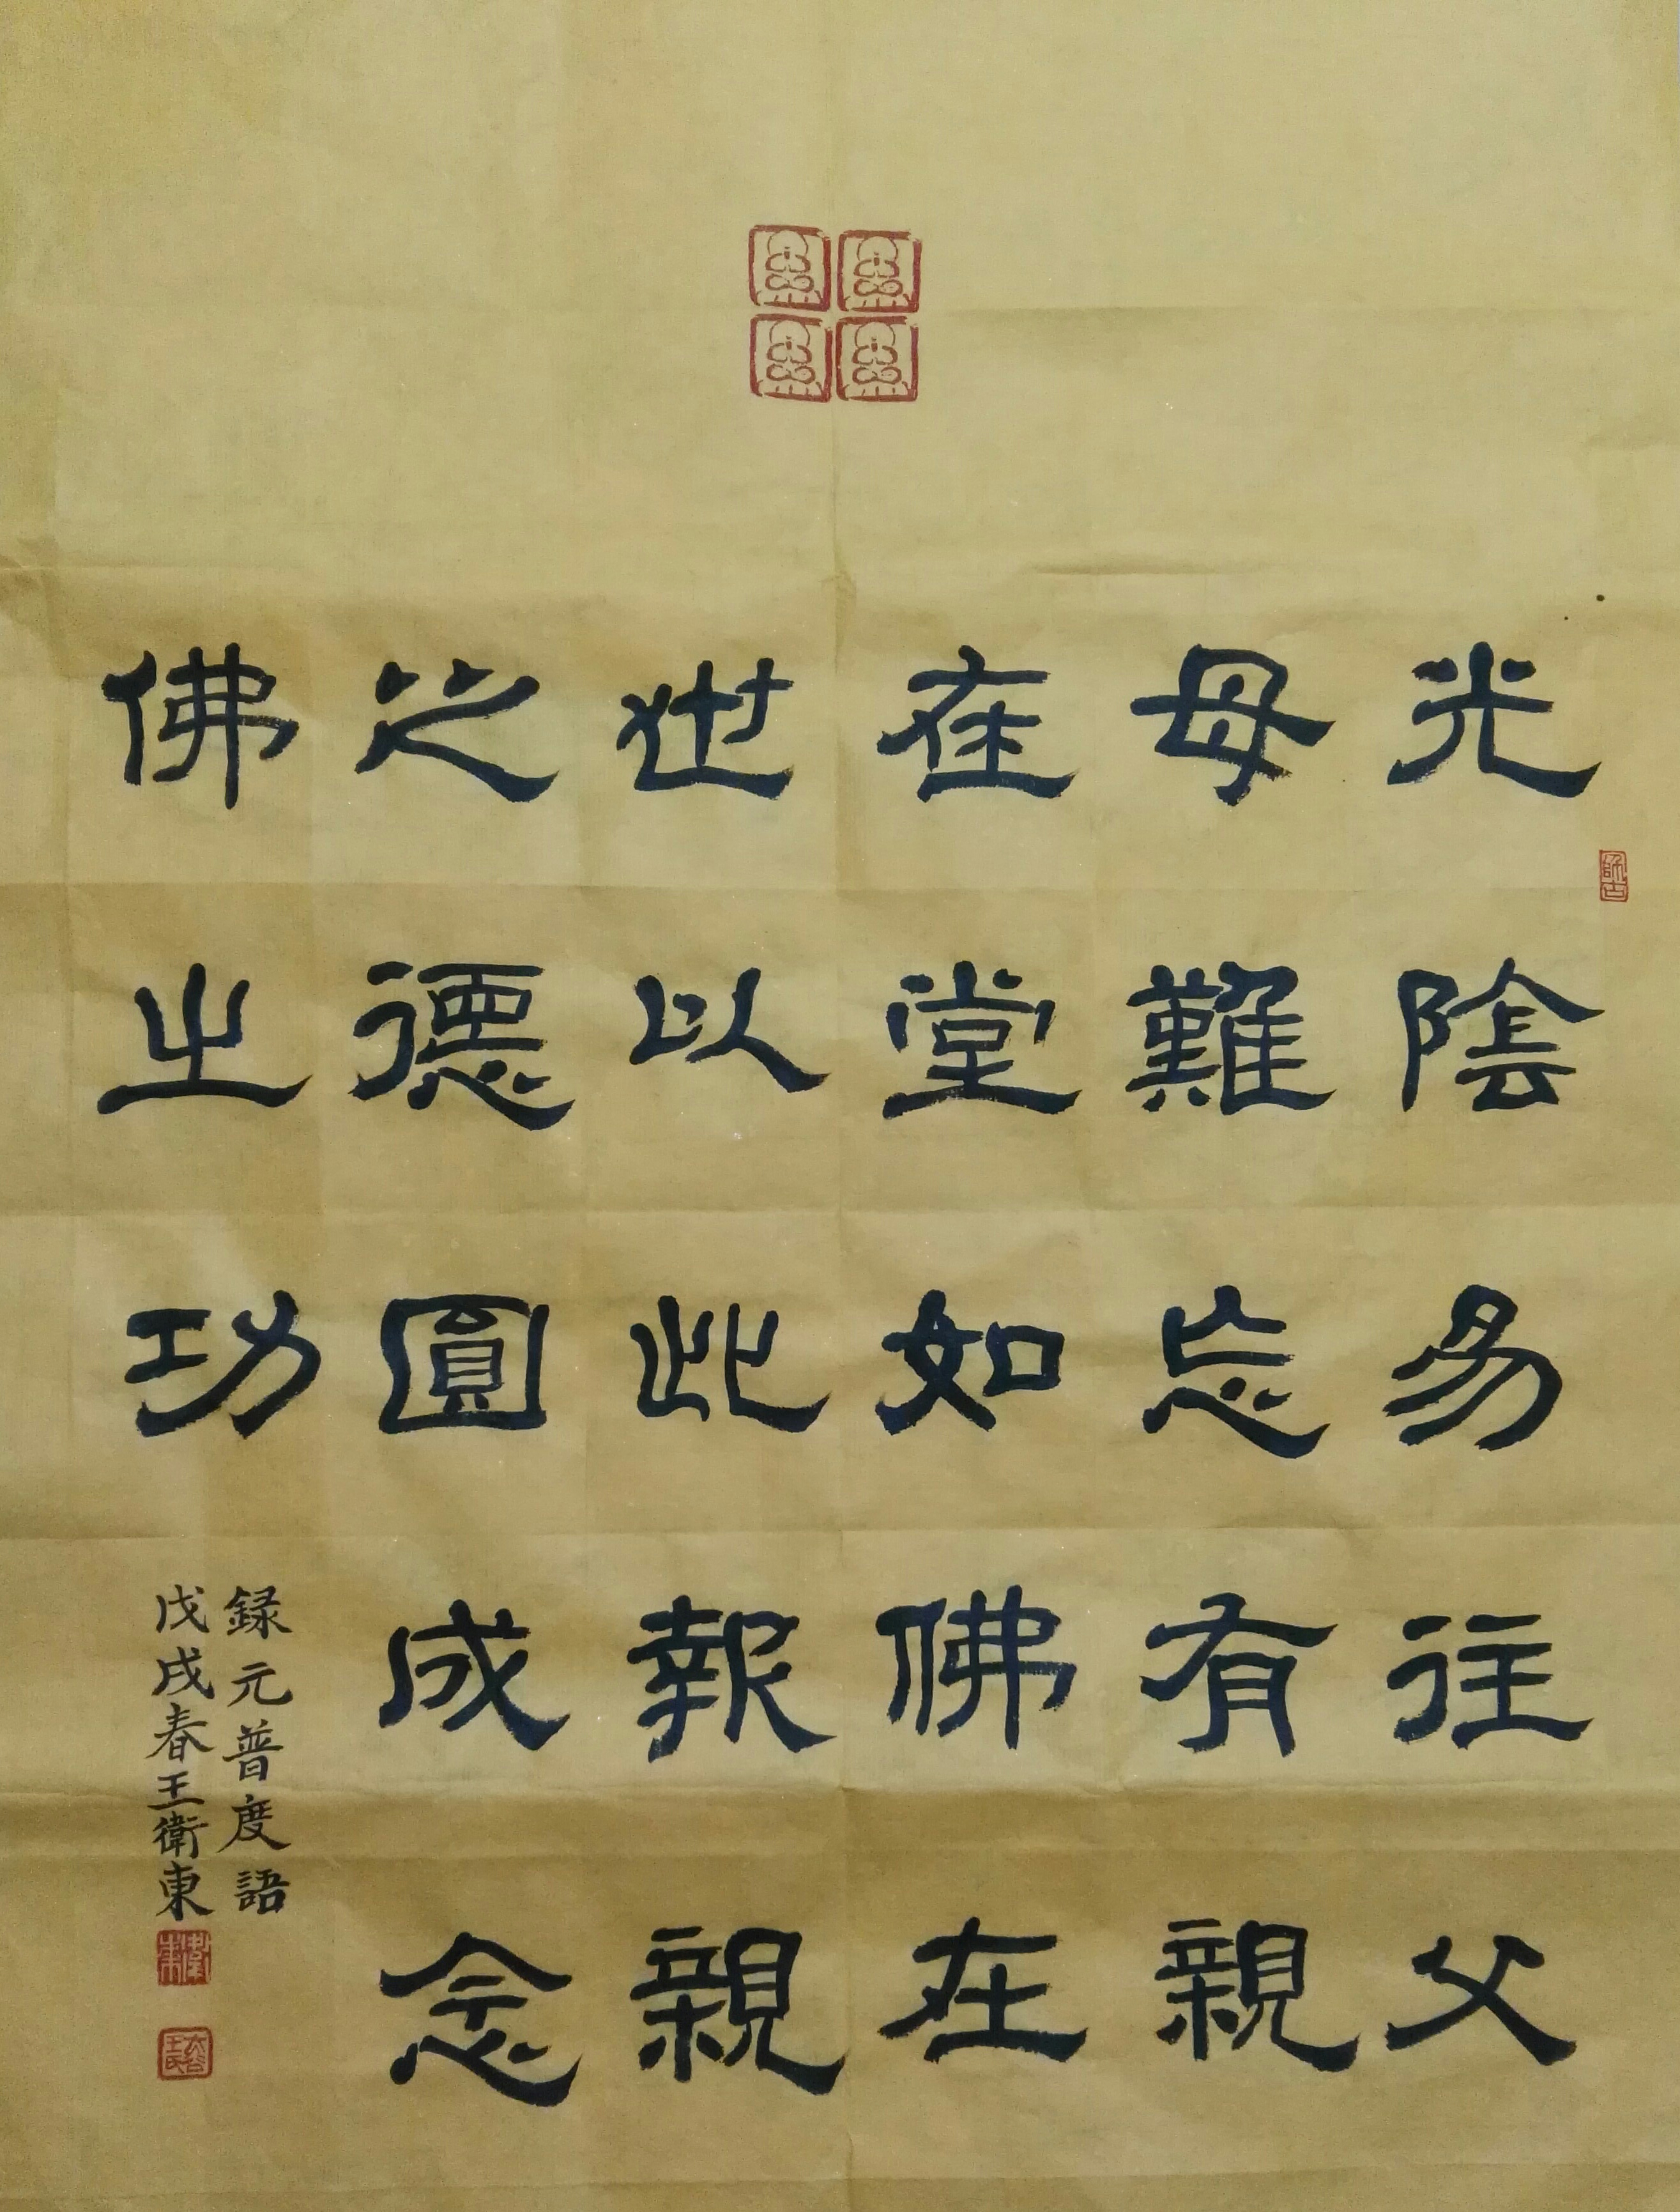 光陰易往父
母難忘有親
在堂如佛在
世以此報親
之德圓成念
佛之功
録元普度語
戊戌春王衛東
師古